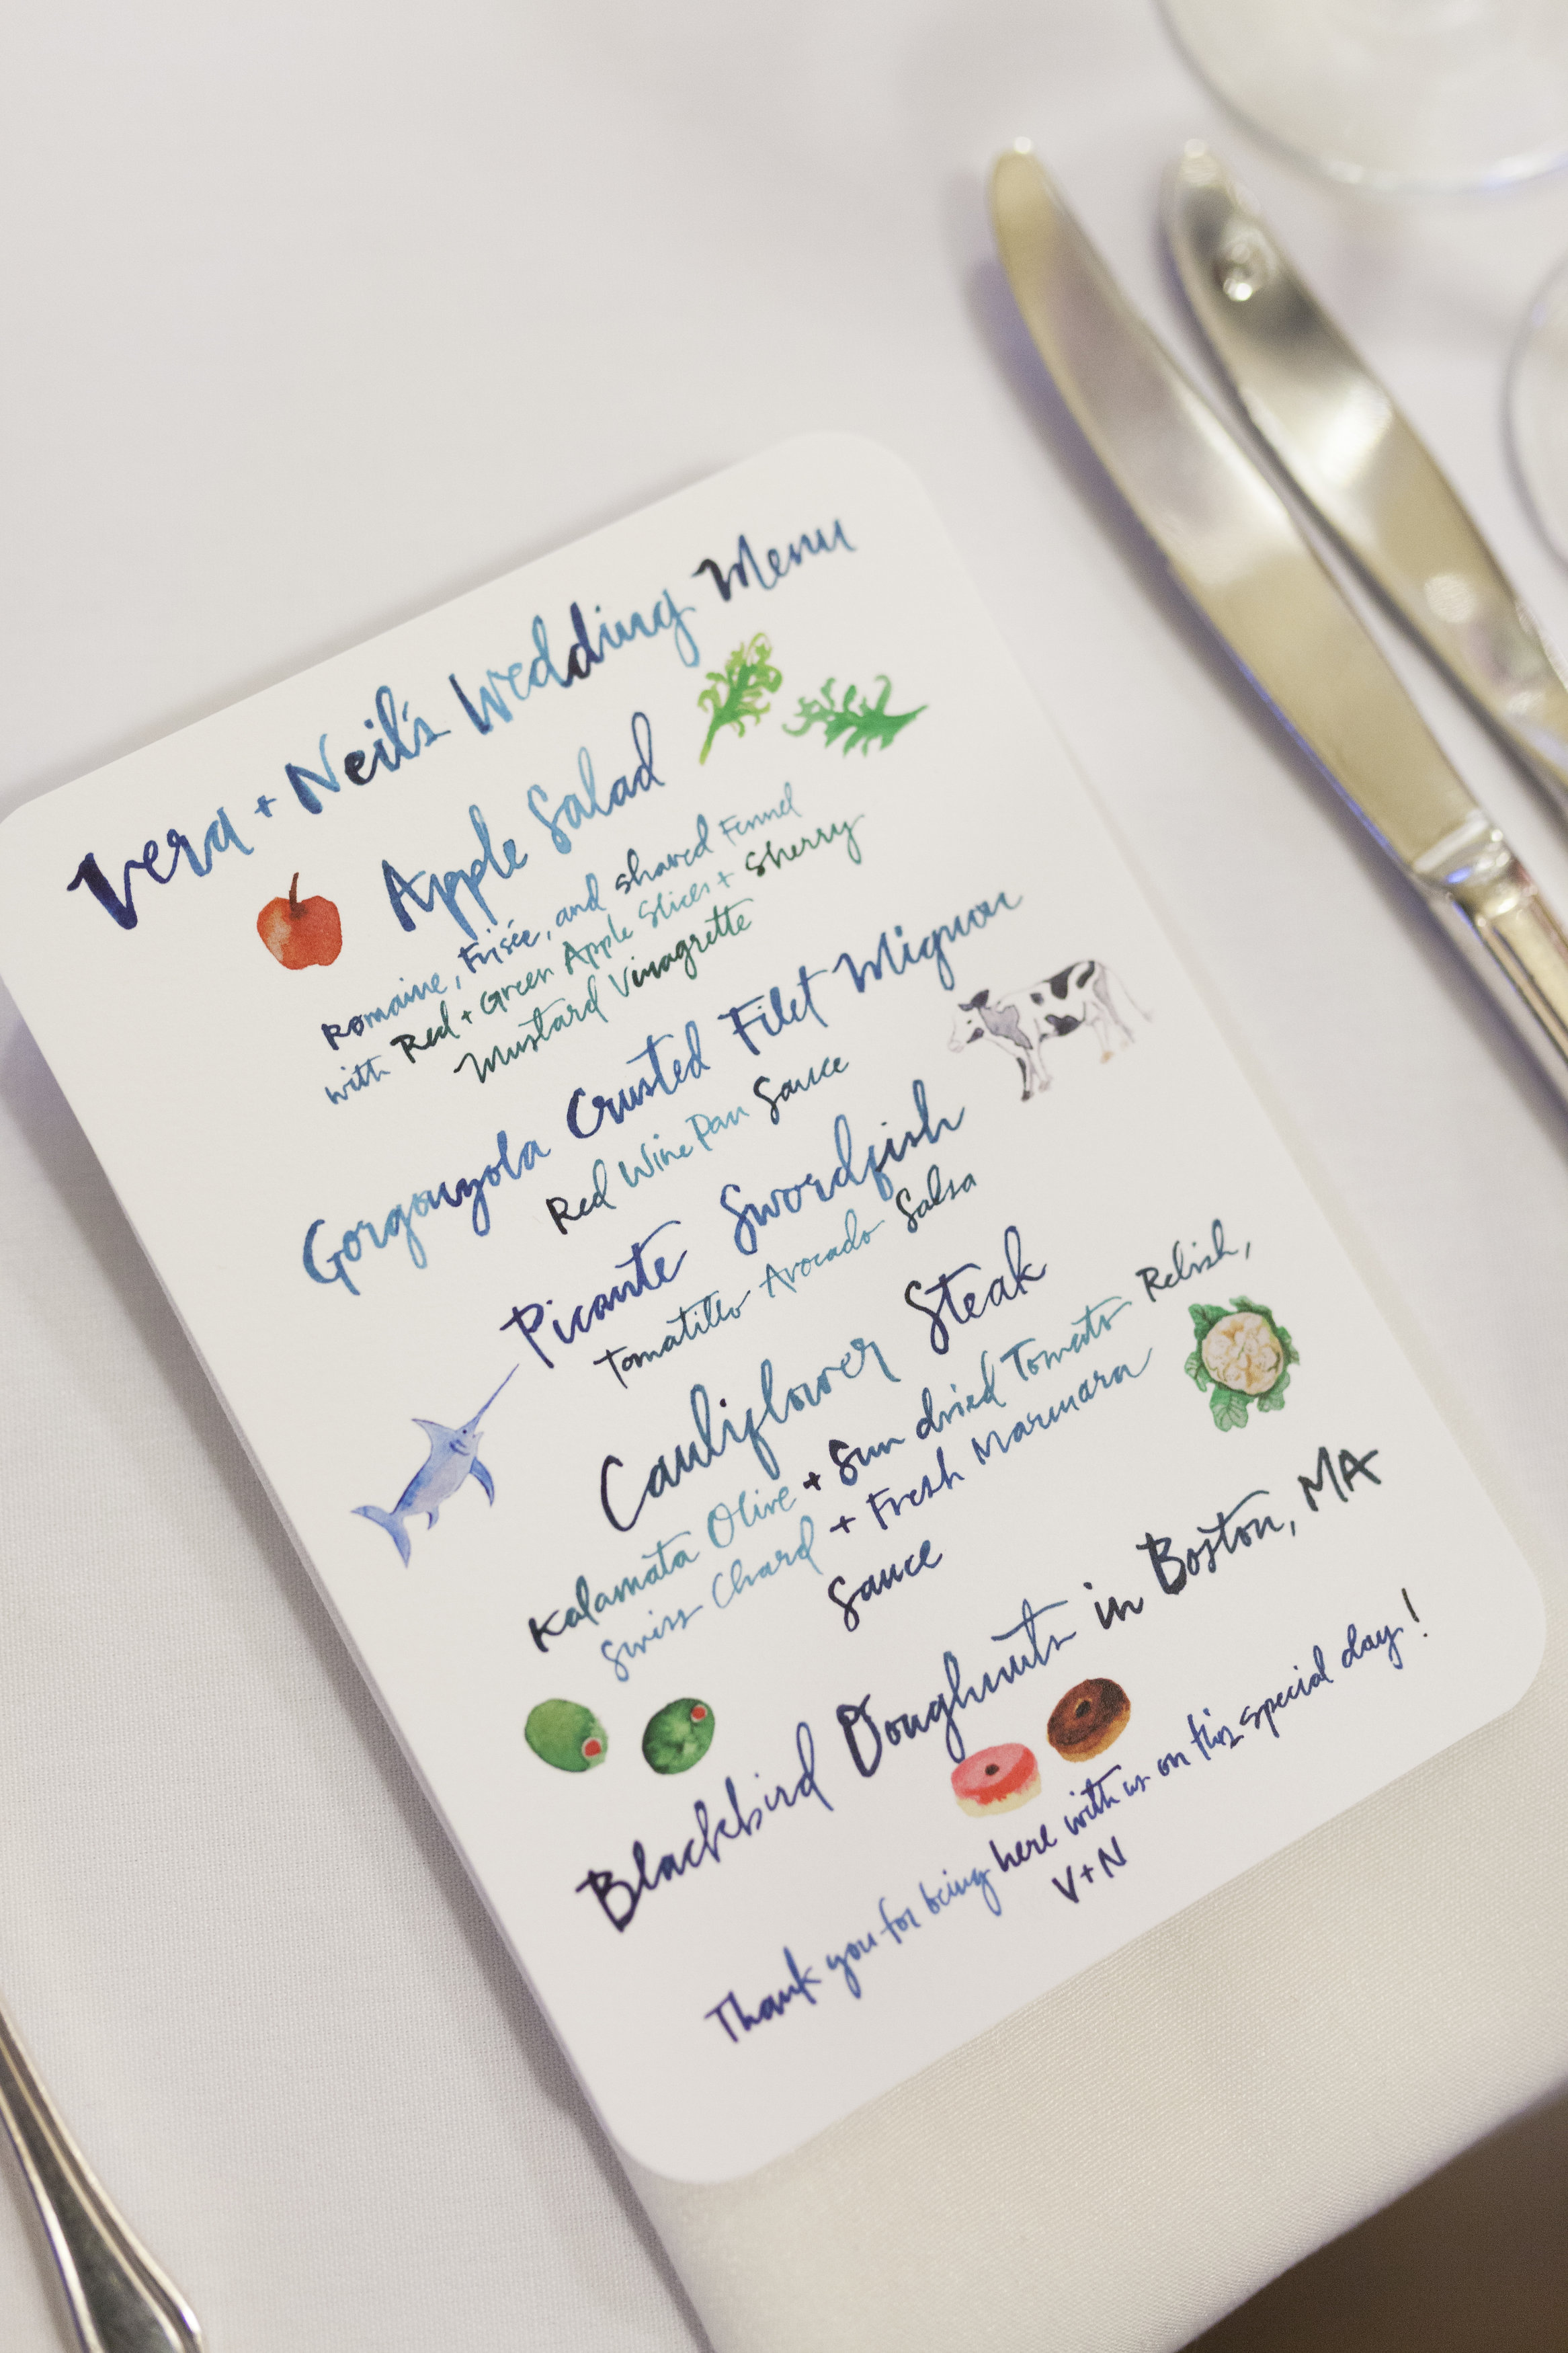 Vera + Neil's Wedding Menu
Apple Salad
Romaine, Frisée, and shaved Fennel
with Red + Green Apple Slices + Sherry
Mustard Vinagrette
Gorgonzola Crusted Filet Mignon
Red Wine Pan Sauce
Picante Swordfish
Tomatillo Avocado Salsa
Cauliflower Steak
Kalamata Olive + Sun dried Tomato Relish,
Swiss Chard + Fresh Marinara
Sauce
Blackbird Doughnuts in Boston, MA
Thank you for being here with us on this special day!
V+N